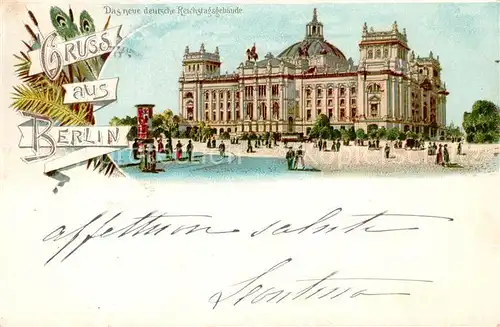 Das neue deutsche Reichstagsgebäude
GRUSS
aus
BERLIN
affettuosi saluti
Leontina